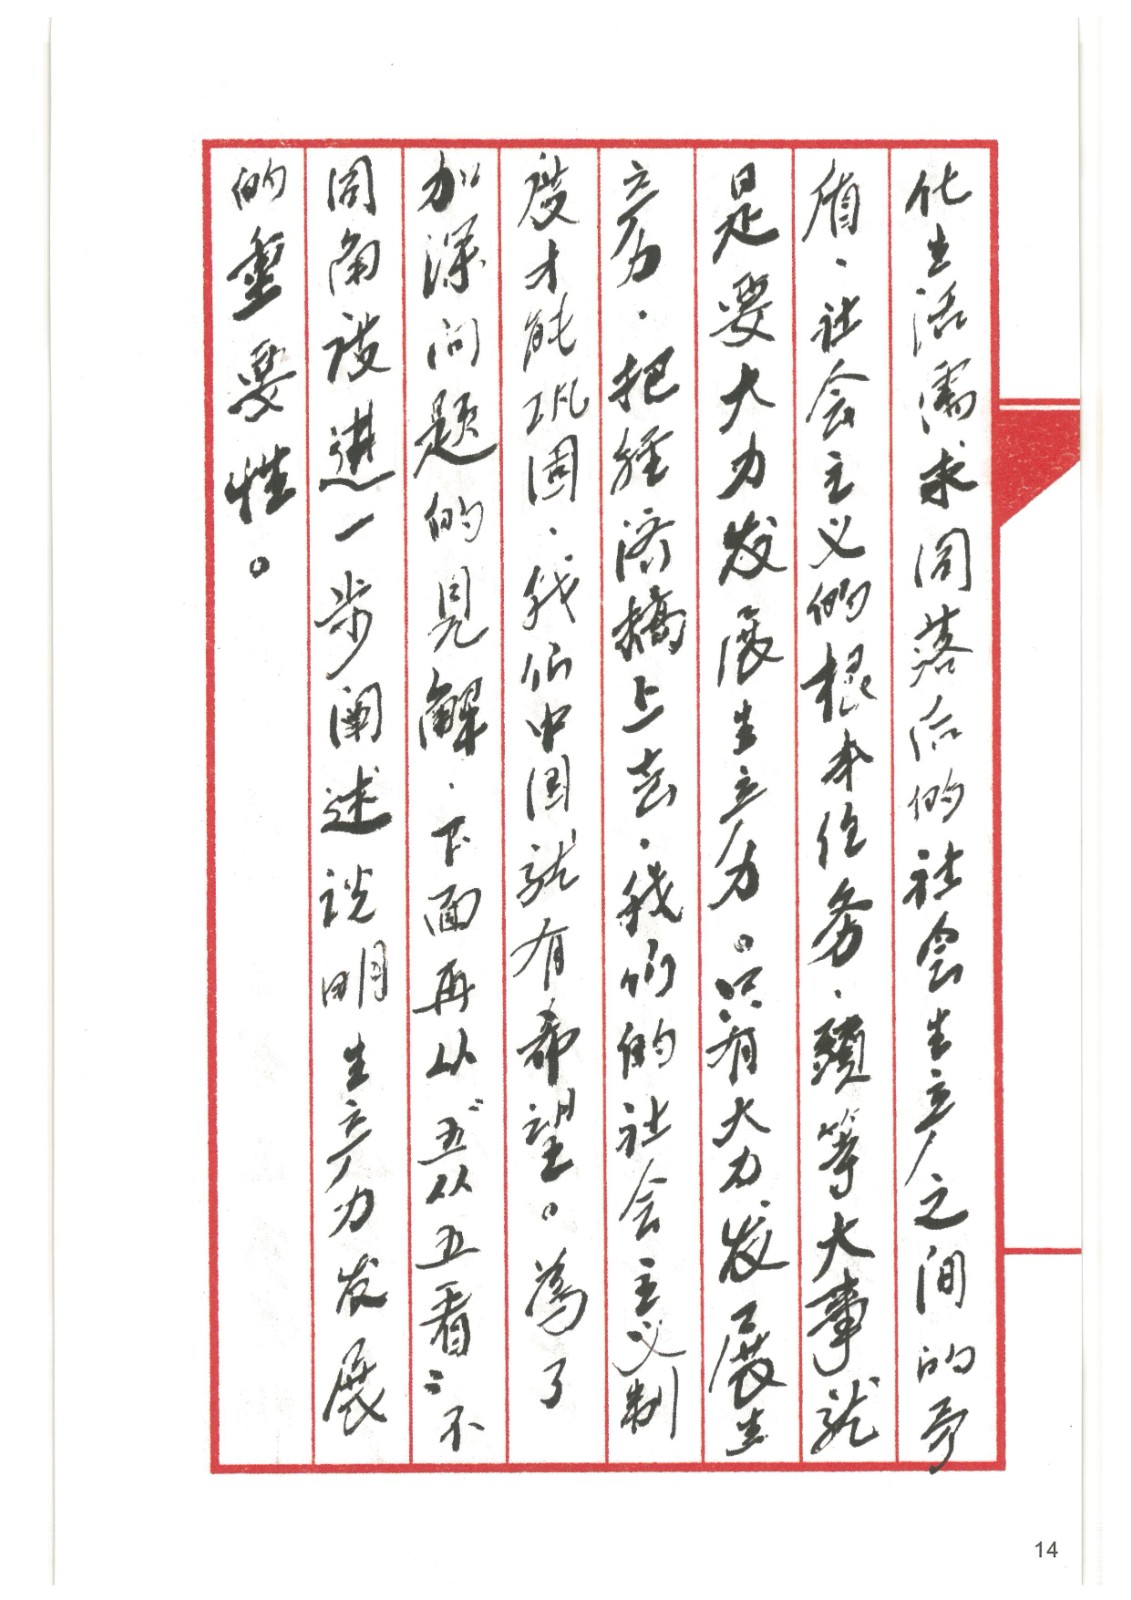 化生活需求同落后的社会生产之间的矛
盾、社会主义的根本任务、头等大事就
是要大力发展生产力。只有大力发展生
产力、把经济搞上去、我们的社会主义制
度才能巩固、我们中国就有希望。为了
加深问题的见解、下面再从“五从五看”不
同角度进一步阐述说明生产力发展
的重要性。
14